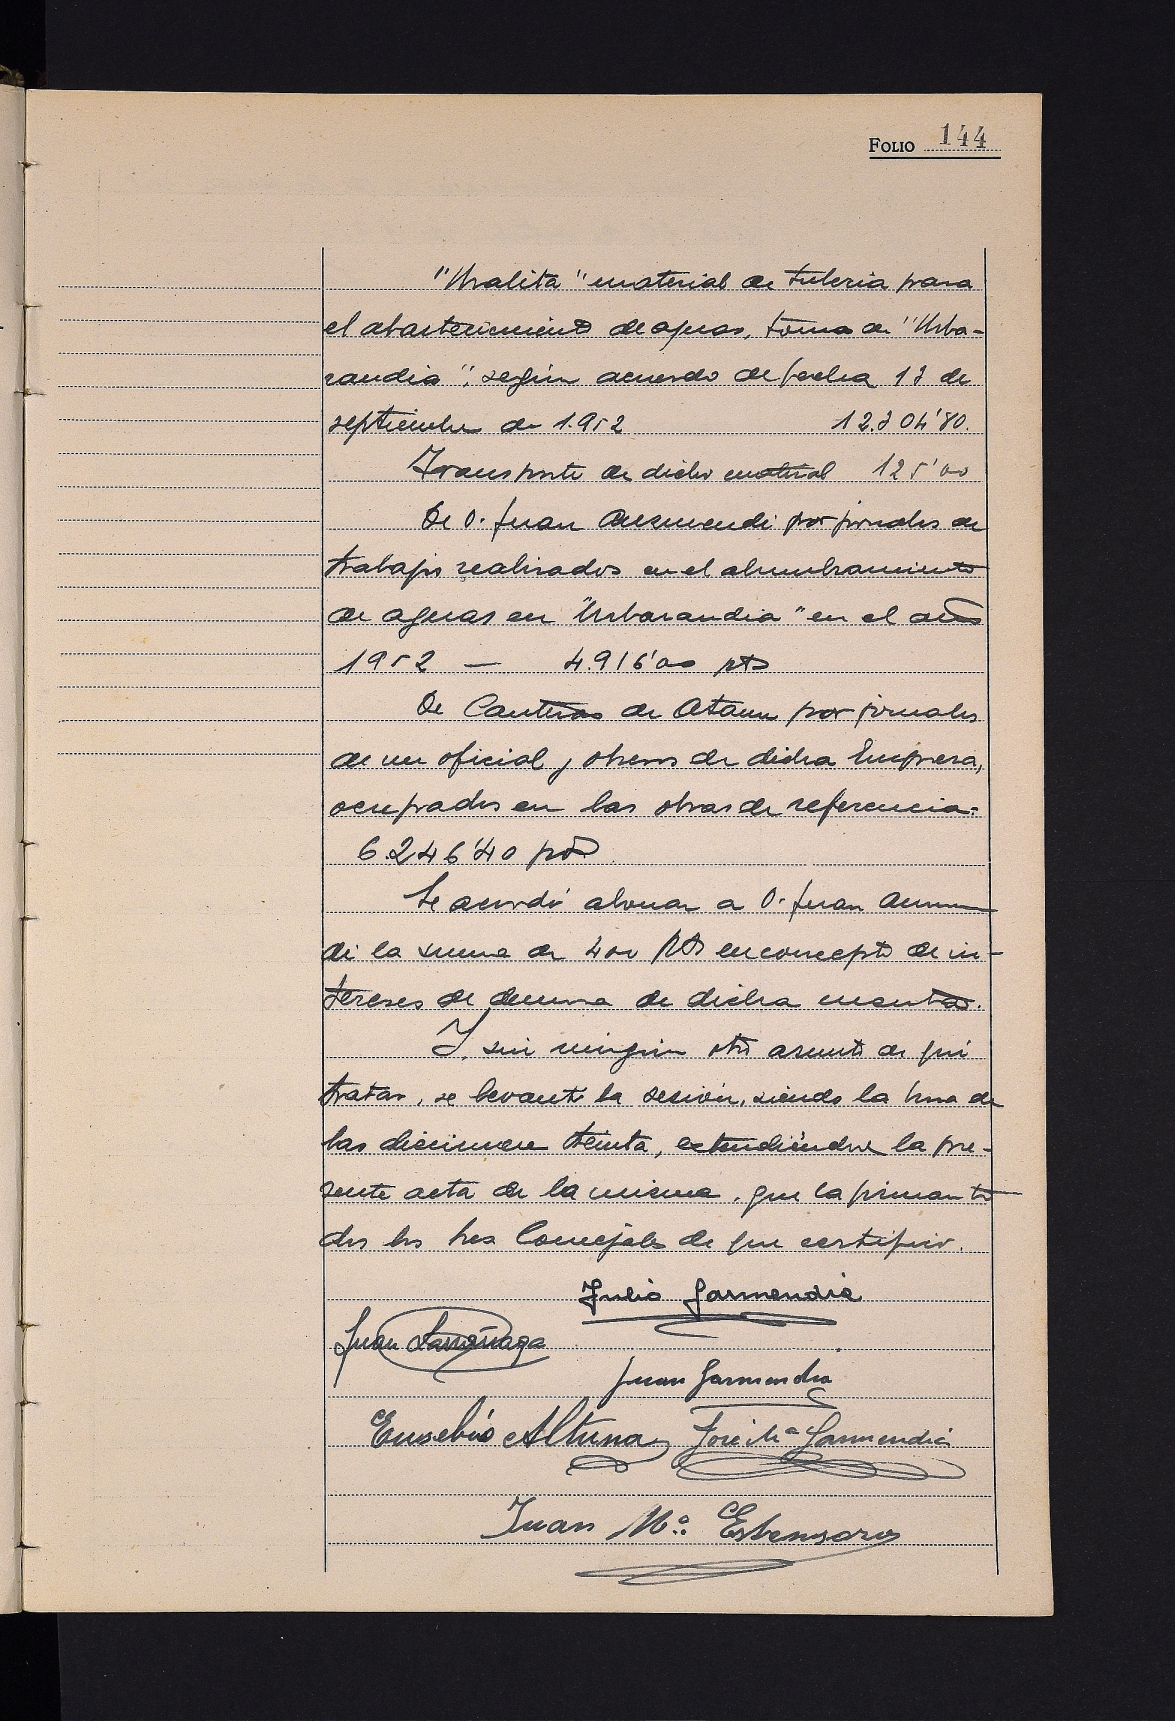 FOLIO 144
"Uralita" material de tuberia para
el abastecimiento de aguas, toma de "Urba-
randia", según acuerdo de fecha 13 de
septiembre de 1.952 12.304'80.
Transporte de dicho material 125'00
De D. Juan Auzmendi por jornales de
trabajos realizados en el alumbramiento
de aguas en "Urbarandia" en el año
1952 — 4.916'00 pts
De Canteras de Ataun por jornales
de un oficial y obreros de dicha Empresa,
ocupados en las obras de referencia:
6.246'40 pts.
Se acordó abonar a D. Juan
di la suma de 400 pts en concepto de in-
tereses de demora de dicha cuenta.
Y sin ningún otro asunto de qué
tratar, se levantó la sesión, siendo la hora de
las diecinueve treinta, extendiéndose la pre-
sente acta de la misma, que la firman to
dos los tres Concejales de que certifico.
Julio Garmendia
Juan Larrañaga
Juan Garmendia
Eusebio Altuna José Mª Garmendia
Juan Mª Estensoro